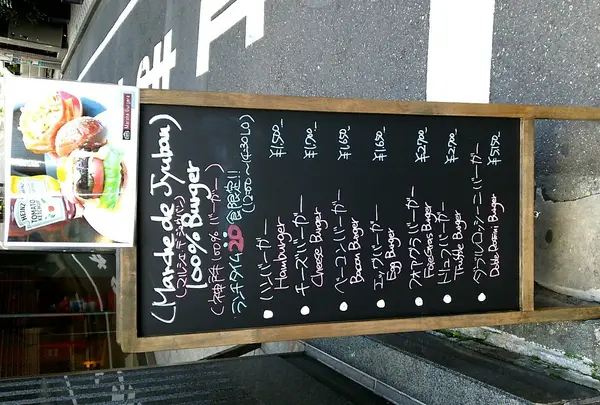 (Marche de Jyuban)
(マルシェ デ ジュバン)
100% Burger
(神戸牛 100% バーガー)
ランチタイム 20食限定!!
(12:00〜14:30 LO)
ハンバーガー ¥1,500
Hamburger
チーズバーガー ¥1,700
Cheese Burger
ベーコンバーガー ¥1,650
Bacon Burger
エッグバーガー ¥1,650
Egg Burger
フォアグラバーガー ¥2,700
Foie Gras Burger
トリュフバーガー ¥2,700
Truffle Burger
ダブルロッシーニバーガー ¥5,150
HEINZ
TOMATO
KETCHUP